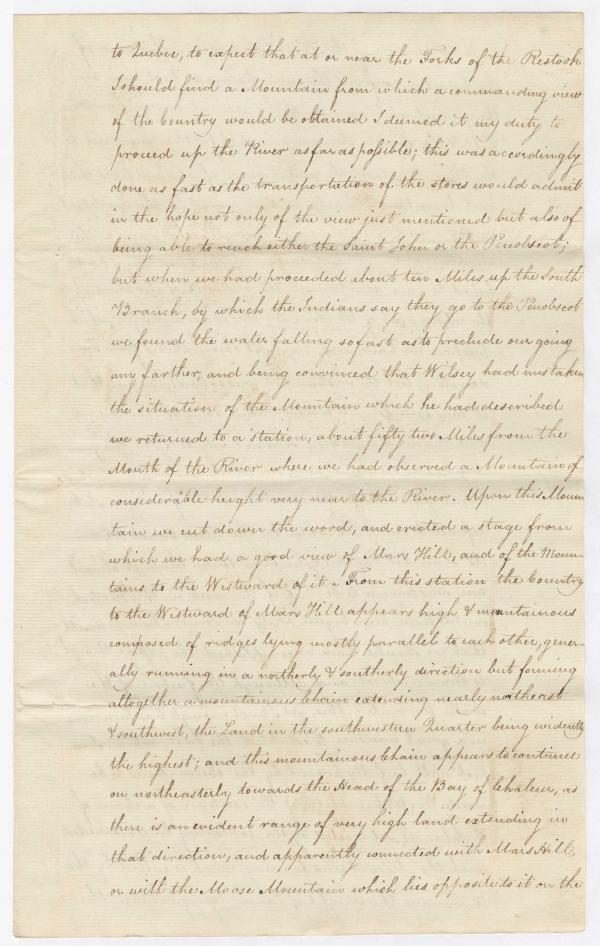 to Quebec, to expect that at or near the Forks of the Restook
I should find a Mountain from which a commanding view
of the Country would be obtained I deemed it my duty to
proceed up the River as far as possible; this was accordingly
done as fast as the transportation of the stores would admit
in the hope not only of the view just mentioned but also of
being able to reach either the Saint John or the Penobscot;
but when we had proceeded about ten Miles up the South
Branch, by which the Indians say they go to the Penobscot
we found the water falling so fast as to preclude our going
any farther, and being convinced that Wilsey had mistaken
the situation of the Mountain which he had described
we returned to a station, about fifty two Miles from the
Mouth of the River where we had observed a Mountain of
considerable height very near to the River. Upon this Moun-
tain we cut down the wood, and erected a stage from
which we had a good view of Mars Hill, and of the Moun-
tains to the Westward of it - From this station the Country
to the Westward of Mars Hill appears high & mountainous
composed of ridges lying mostly parallel to each other, gener-
ally running in a northerly & southerly direction but forming
altogether a mountainous Chain extending nearly northeast
& southwest, the Land in the southwestern Quarter being evidently
the highest; and this mountainous Chain appears to continue
on northeasterly towards the Head of the Bay of Chaleur, as
there is an evident range of very high land extending in
that direction, and apparently connected with Mars Hill,
or with the Moose Mountain which lies opposite to it on the